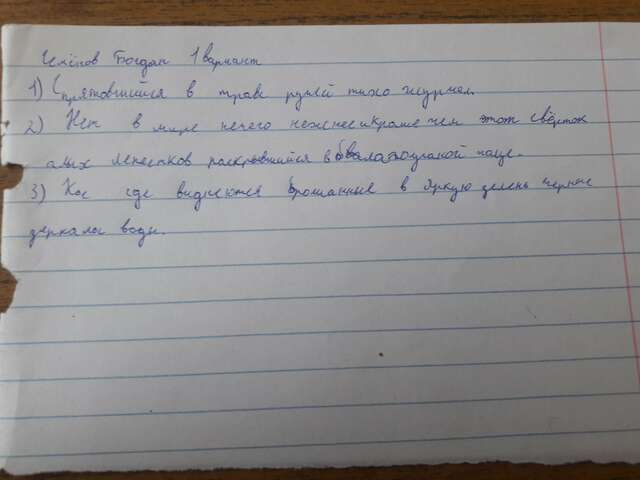 Богдан 1 вариант
1) Спрятовшийся в траве ручей тихо журчал.
2) Нет в мире нечего нежнее и краше чем этот свёрток
алых лепестков раскрывшийся в
3) Кое где виднеются брошанные в яркую зелень черные
зеркала воды.